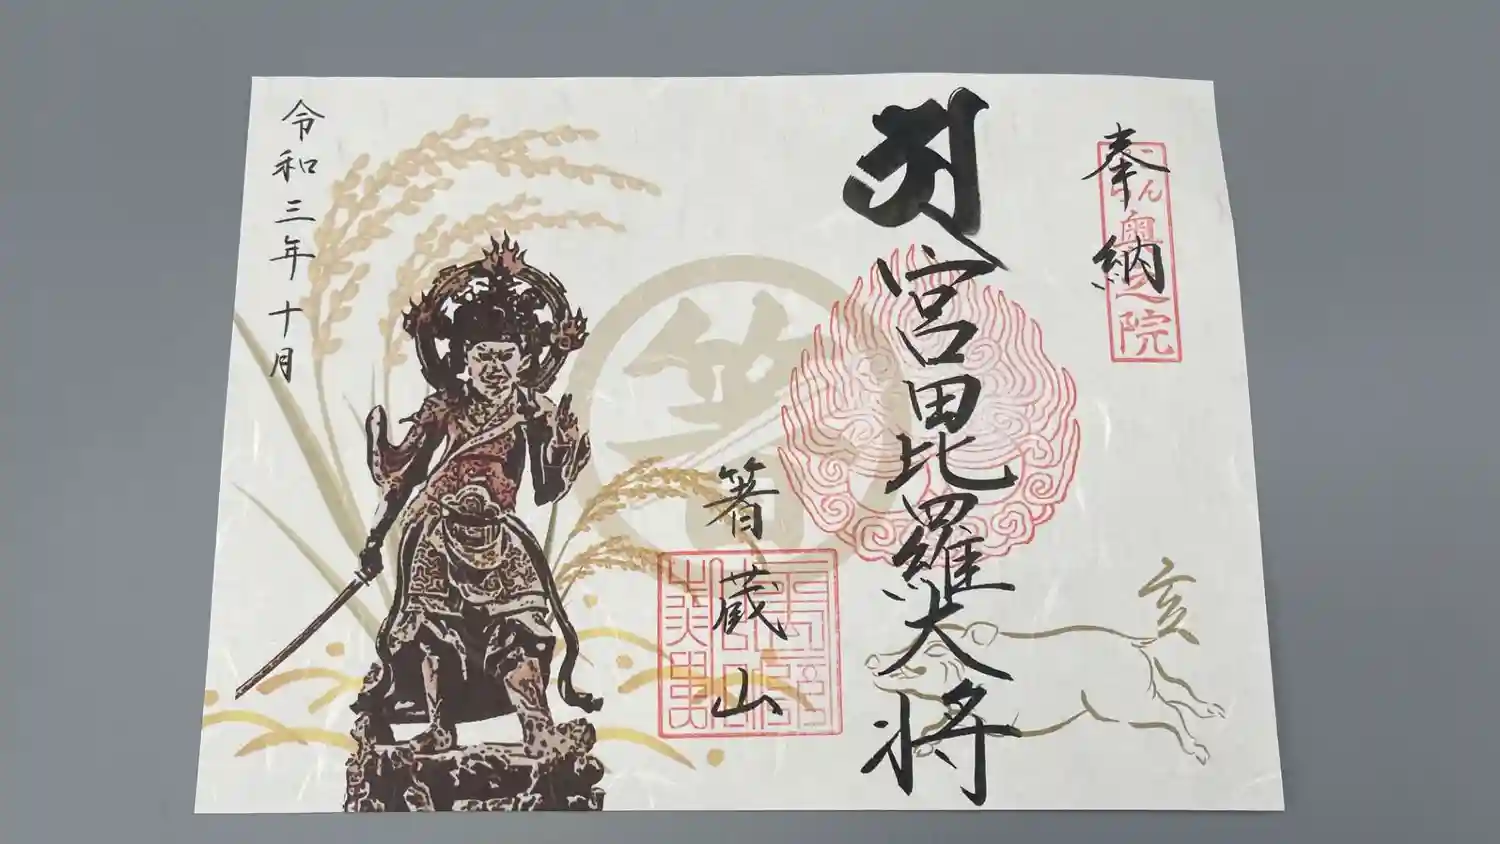 奉納
奥之院
宮毘羅大将
亥
箸
箸蔵山
令和三年十月